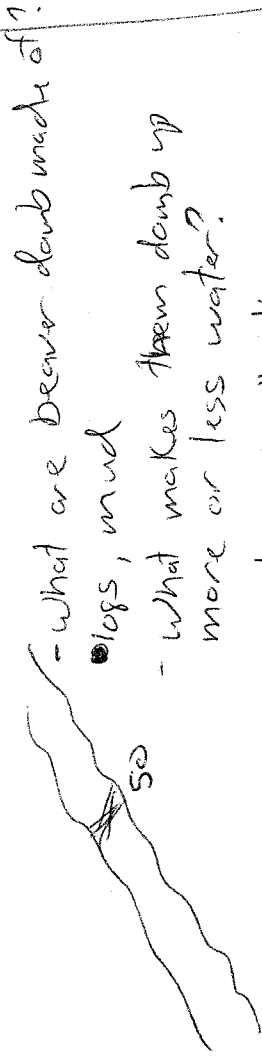 - What are beaver damb made of?
logs, mud
- What makes them damb up
more or less water?
50